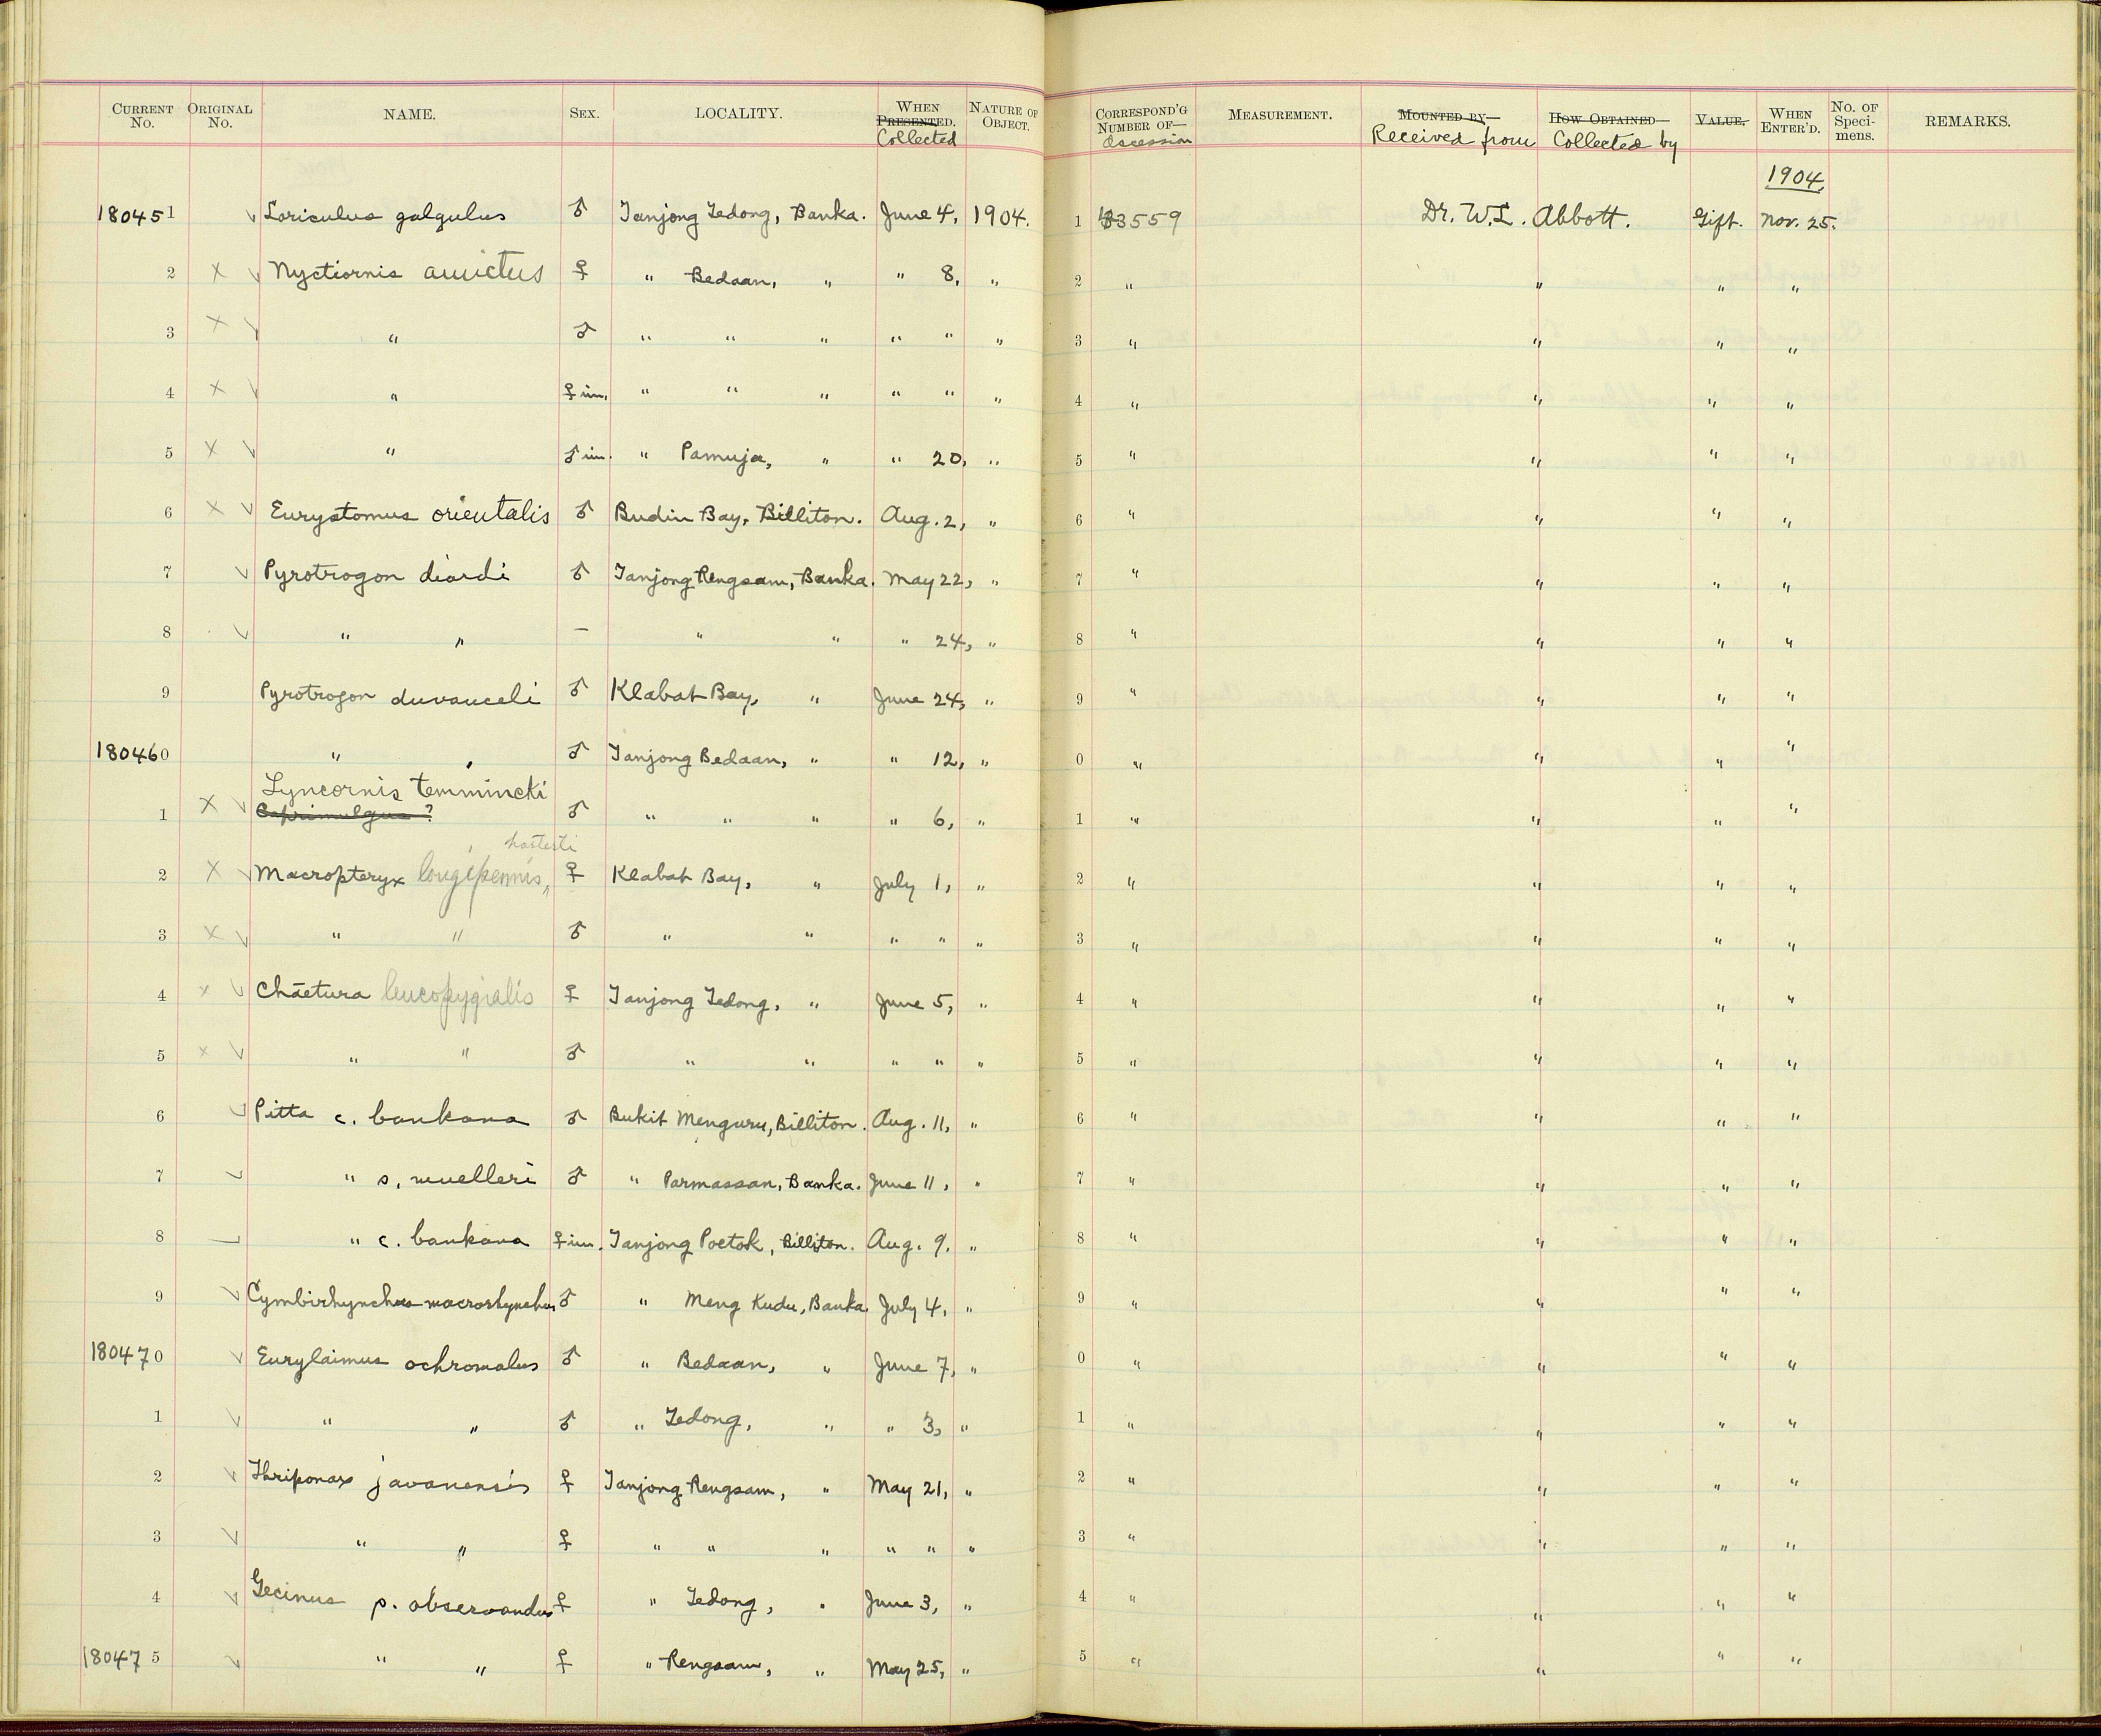 CURRENT No. ORIGINAL No. NAME. SEX. LOCALITY. WHEN PRESENTED. Collected NATURE OF OBJECT. CORRESPOND'G NUMBER OF— Accession MEASUREMENT. MOUNTED BY— Received from HOW OBTAINED— Collected by VALUE. WHEN ENTER'D. No. OF Speci-mens. REMARKS.
1904.
180451 ✓ Loriculus galgulus ♂ Tanjong Tedong, Banka. June 4, 1904. 1 43559 Dr. W. L. Abbott. Gift. Nov. 25.
2 × ✓ Nyctiornis amictus ♀ " Bedaan, " " 8, " 2 " " " "
3 × ✓ " ♂ " " " " " " 3 " " " "
4 × ✓ " ♀ im. " " " " " " 4 " " " "
5 × ✓ " ♂ im. " Pamuja, " " 20, " 5 " " " "
6 × ✓ Eurystomus orientalis ♂ Budin Bay, Billiton. Aug. 2, " 6 " " " "
7 ✓ Pyrotrogon diardi ♂ Tanjong Rengsam, Banka. May 22, " 7 " " " "
8 ✓ " " — " " " 24, " 8 " " " "
9 Pyrotrogon duvauceli ♂ Klabat Bay, " June 24, " 9 " " " "
180460 " " ♂ Tanjong Bedaan, " " 12, " 0 " " " "
Lyncornis temmincki
1 × ✓ Caprimulgus ? ♂ " " " " 6, " 1 " " " "
harterti
2 × ✓ Macropteryx longipennis, ♀ Klabat Bay, " July 1, " 2 " " " "
3 × ✓ " " ♂ " " " " " 3 " " " "
4 × ✓ Chaetura leucopygialis ♀ Tanjong Tedong, " June 5, " 4 " " " "
5 × ✓ " " ♂ " " " " " 5 " " " "
6 ✓ Pitta c. bankana ♂ Bukit Menguru, Billiton. Aug. 11, " 6 " " " "
7 ✓ " s. muelleri ♂ " Parmassan, Banka. June 11, " 7 " " " "
8 ✓ " c. bankana ♀ im. Tanjong Poetok, Billiton. Aug. 9, " 8 " " " "
9 ✓ Cymbirhynchus macrorhynchus ♂ " Meng Kudu, Banka. July 4, " 9 " " " "
180470 ✓ Eurylaimus ochromalus ♂ " Bedaan, " June 7, " 0 " " " "
1 ✓ " " ♂ " Tedong, " " 3, " 1 " " " "
2 ✓ Thriponax javanensis ♀ Tanjong Rengsam, " May 21, " 2 " " " "
3 ✓ " " ♀ " " " " " " 3 " " " "
4 ✓ Gecinus p. observandus ♀ " Tedong, " June 3, " 4 " " " "
180475 ✓ " " ♀ " Rengsam, " May 25, " 5 " " " "